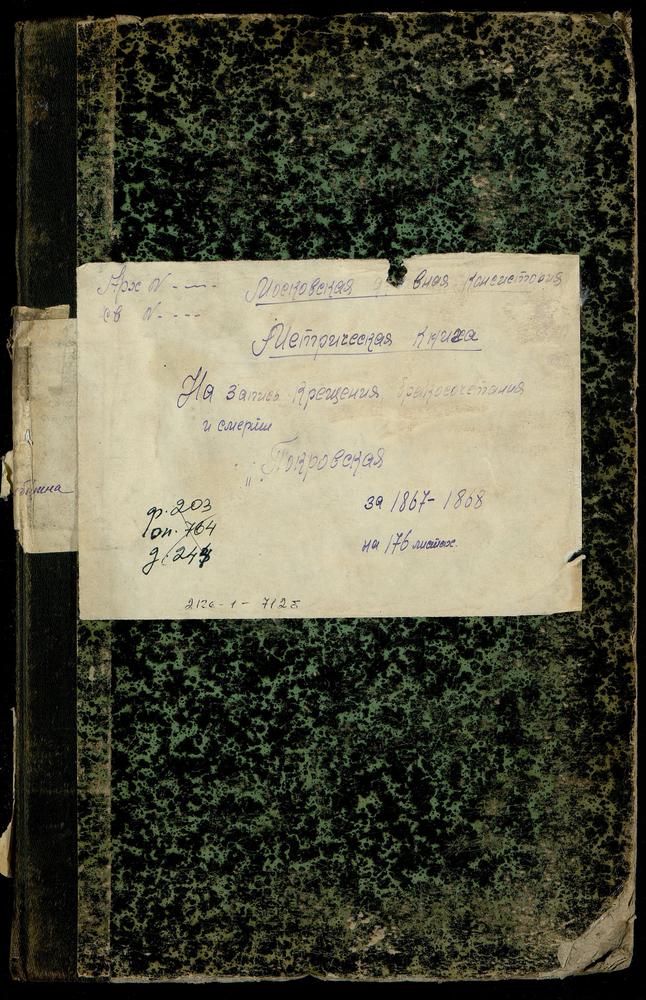 Арх N - - - - Московская вная Консистория
св N - - - -
Метрическая Книга
На Запись Крещения бракосочетания
и смерти
„Покровская
за 1867 - 1868
на 176 листах.
ф. 203
оп. 764
д.